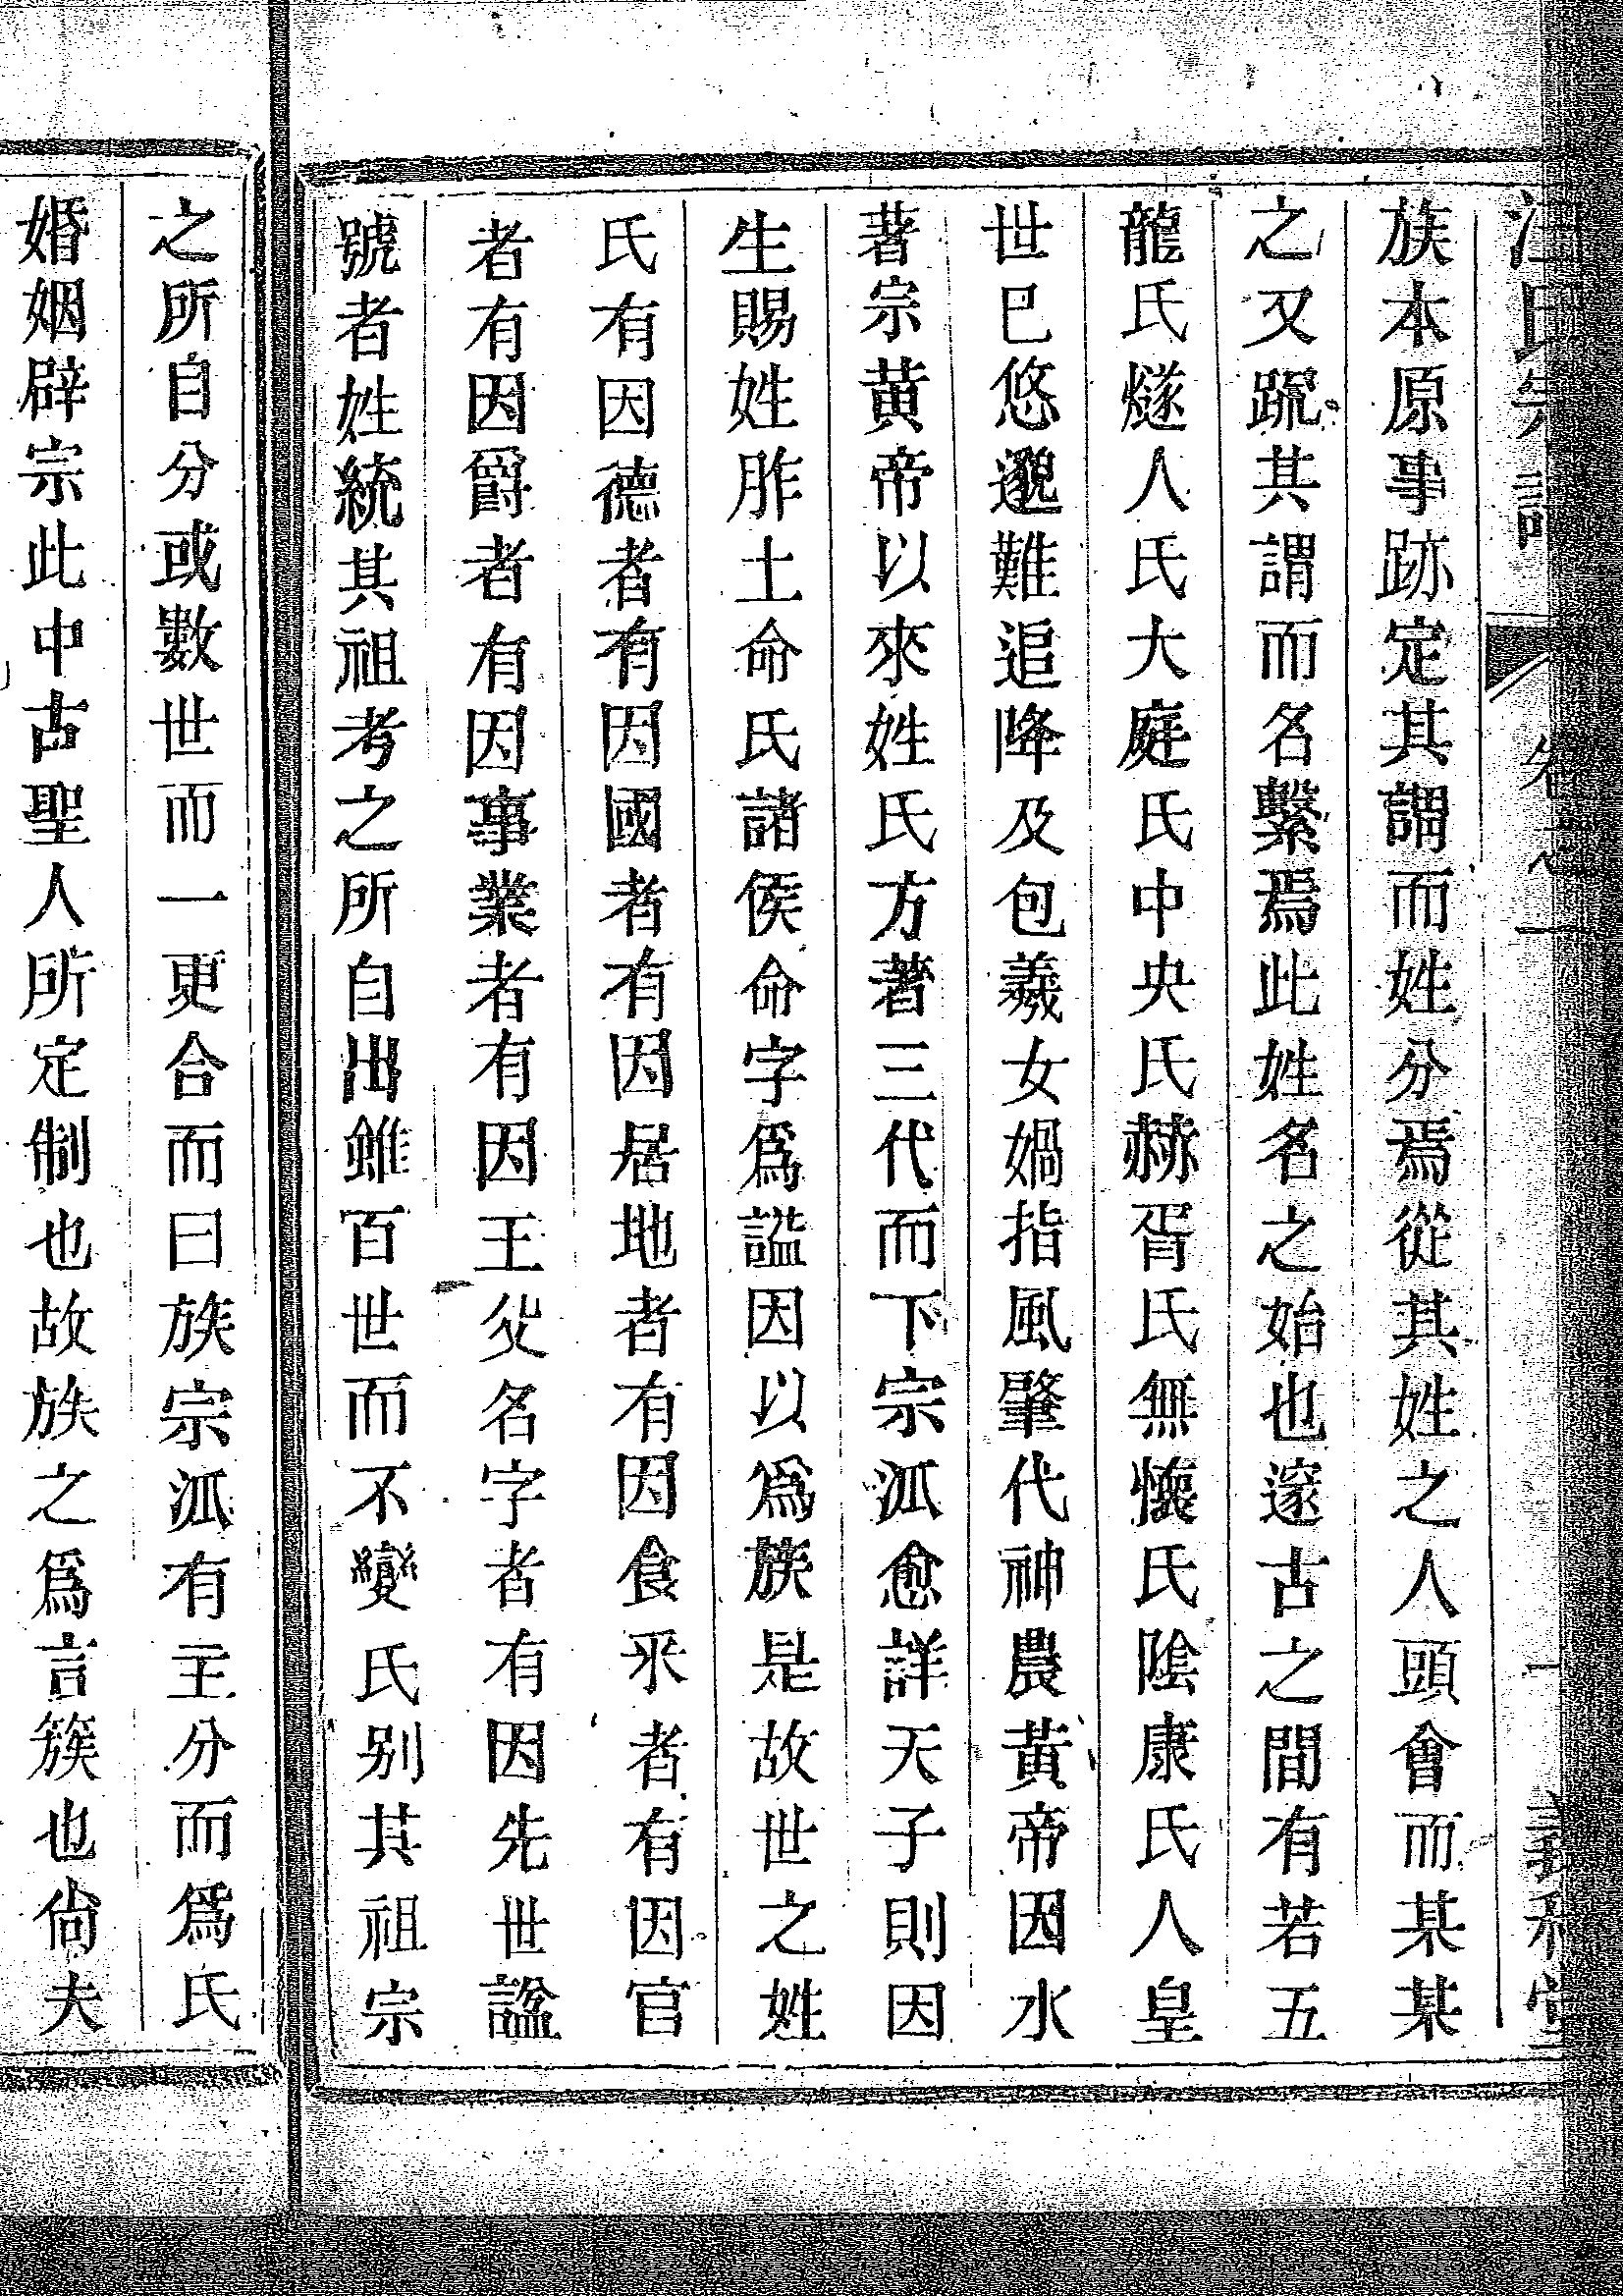 族本原事跡定其謂而姓分焉從其姓之人頭會而某某
之又䟽其謂而名繫焉此姓名之始也邃古之間有若五
龍氏燧人氏大庭氏中央氏赫胥氏無懷氏陰康氏人皇
世巳悠邈難追降及包羲女媧指風肇代神農黃帝因水
著宗黄帝以來姓氏方著三代而下宗派愈詳天子則因
生賜姓胙土命氏諸侯命字爲謚因以爲族是故世之姓
氏有因德者有因國者有因居地者有因食采者有因官
者有因爵者有因事業者有因王父名字者有因先世謚
號者姓統其祖考之所自出雖百世而不變氏别其祖宗
之所自分或數世而一更合而曰族宗派有主分而爲氏
婚姻辟宗此中古聖人所定制也故族之爲言簇也尙夫